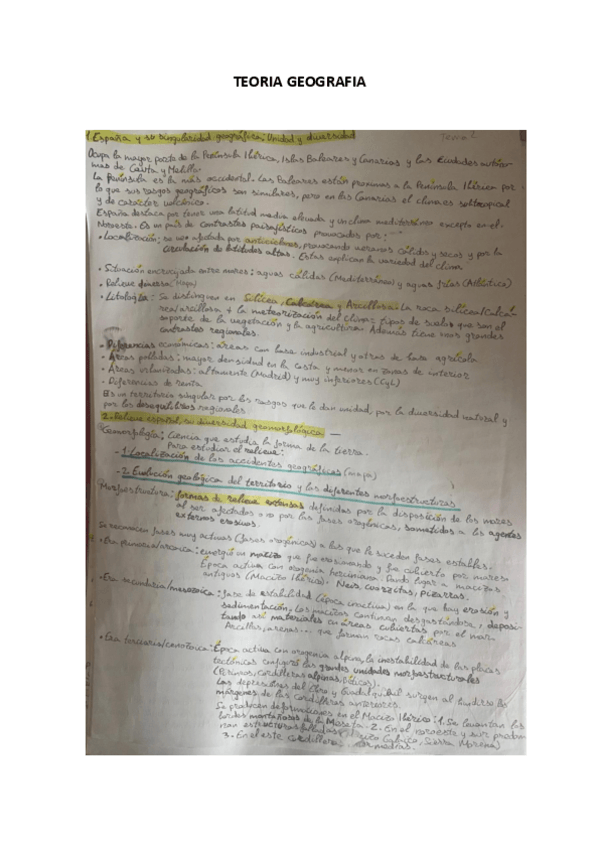 TEORIA GEOGRAFIA
1. España y su singularidad geográfica: Unidad y diversidad
Tema 1
Ocupa la mayor parte de la Península Ibérica, Islas Baleares y Canarias y las Ciudades autóno-
mas de Ceuta y Melilla.
La Península es la más occidental. Las Baleares están proximas a la Península Ibérica por
lo que sus rasgos geográficos son similares, pero en las Canarias el clima es subtropical
y de carácter volcánico.
España destaca por tener una latitud media elevada y un clima mediterráneo excepto en el
Noroeste. Es un país de contrastes paisajísticos provocados por:
• Localización: se ve afectada por anticiclones, provocando veranos cálido y secos y por la
circulación de latitudes altas. Estas explican la variedad del clima.
• Situación encrucijada entre mares: aguas cálidas (Mediterráneo) y aguas frías (Atlántico)
• Relieve diverso (mapa)
• Litología: Se distinguen en Silícea, Calcárea y Arcillosa. La roca silícea/calcá
rea/arcillosa + la meteorización del clima = tipos de suelos que son el
soporte de la vegetación y la agricultura. Además tiene unos grandes
contrastes regionales.
• Diferencias económicas: áreas con base industrial y otras de base agrícola
• Áreas pobladas: mayor densidad en la costa y menor en zonas de interior
• Áreas urbanizadas: altamente (Madrid) y muy inferiores (CyL)
• Diferencias de renta
Es un territorio singular por los rasgos que le dan unidad, por la diversidad natural y
por los desequilibrios regionales.
2. Relieve español, su diversidad geomorfológica
Geomorfología: Ciencia que estudia la forma de la tierra.
Para estudiar el relieve:
- 1. Localización de los accidentes geográficos (mapa)
- 2. Evolución geológica del territorio y las diferentes morfoestructuras
Morfoestructura: formas de relieve extensas definidas por la disposición de los
al ser afectados o no por las fases orogénicas, sometidos a los agentes
externos erosivos.
Se reconocen fases muy activas (fases orogénicas) a las que le suceden fases estables.
• Era primaria/arcaica: emergió un macizo que fue erosionando y fue cubierto por mares.
Época activa con orogenia herciniana. Dando lugar a macizos
antiguos (Macizo Ibérico). Neis, cuarcitas, pizarras.
• Era secundaria/mesozoica: fase de estabilidad en la que hay erosión y
sedimentación. Los macizos continuan desgastándose, deposi-
tando así materiales en áreas cubiertas por el mar.
Arcillas, arenas... que forman rocas calcáreas
• Era terciaria/cenozoica: Época activa con orogenia alpina, la inestabilidad de las placas
tectónicas configuró las grandes unidades morfoestructurales
(Pirineos, Cordilleras alpinas, Béticas).
Las depresiones del Ebro y Guadalquivir surgen al hundirse los
márgenes de las cordilleras anteriores.
Se producen deformaciones en el Macizo Ibérico: 1. Se levantan los
bordes montañosos de la Meseta. 2. En el noroeste y sur predom
inan estructuras falladas Sierra Morena)
3. En el este Cordilleras